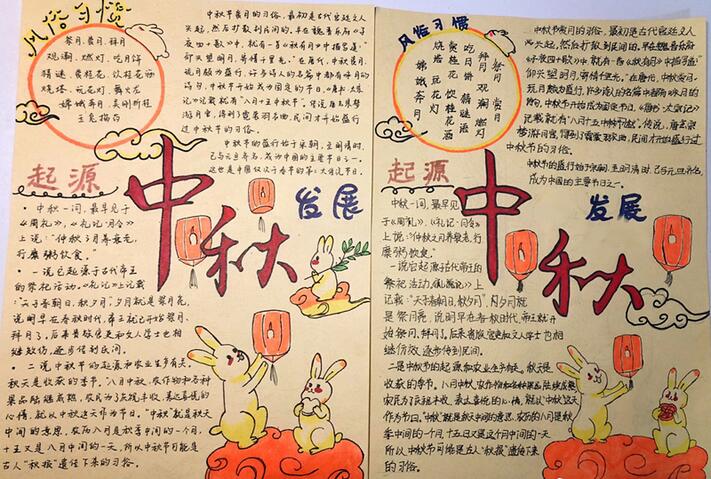 风俗习惯
祭月、赏月、拜月
观潮、燃灯、吃月饼
猜谜、赏桂花、饮桂花酒
烧塔、玩花灯、舞火龙
嫦娥奔月、吴刚折桂
玉兔捣药
中秋节赏月的习俗，最初是古代宫廷文人
兴起，然后扩散到民间的。早在魏晋乐府《子
夜四十歌》中，就有一首《秋有月》中描写道："
仰头望明月，寄情千里光。"在唐代，中秋赏月、
玩月颇为盛行，许多诗人的名篇中都有咏月的
诗句，中秋节开始成为固定的节日，《唐书·太宗
记》记载就有"八月十五中秋节"。传说唐玄宗梦
游月宫，得到了霓裳羽衣曲，民间才开始盛行
过中秋节的习俗。
中秋节的盛行始于宋朝，至明清时，
已与元旦齐名，成为中国的主要节日之一。
这也是中国仅次于春节的第二大传统节日。
起源
中秋
发展
·中秋一词，最早见于
《周礼》、《礼记·月令》
上说："仲秋之月养衰老，
行糜粥饮食。"
·一说它起源于古代帝王
的祭祀活动。《礼记》上记载
"天子春朝日，秋夕月"，夕月就是祭月亮，
说明早在春秋时代，帝王就已开始祭月、
拜月了。后来贵族官吏和文人学士也相
继效仿，逐步传到民间。
·二说，中秋节的起源和农业生产有关。
秋天是收获的季节，八月中秋，农作物和各种
果品陆续成熟，农民为了庆祝丰收，表达喜悦的
心情，就以中秋这天作为节日。"中秋"就是秋天
中间的意思，农历八月是秋季中间的一个月，
十五又是八月中间的一天，所以中秋节可能是
古人"秋报"遗传下来的习俗。
风俗习惯
祭月 赏月
拜月 观潮 燃灯
吃月饼 猜谜语
赏桂花 饮桂花酒
烧塔 玩花灯
嫦娥奔月
中秋节赏月的习俗，最初是古代宫廷文人
兴起，然后扩散到民间的。早在魏晋乐府
《子夜四十歌》中，就有一首《秋有月》中描写道"
仰头望明月，寄情千里光"。在唐代，中秋赏月、
玩月颇为盛行，许多诗人的名篇中都有咏月的
诗句，中秋节开始成为固定节日，《唐书·太宗记》
记载就有"八月十五中秋节"。传说，唐玄宗
梦游月宫，得到了霓裳羽衣曲，民间才开始盛行过
中秋节的习俗。
中秋节的盛行始于宋朝，至明清时，已与元旦齐名，
成为中国的主要节日之一。
起源
中秋
发展
中秋一词，最早见
于《周礼》、《礼记·月令》
上说："仲秋之月养衰老，行
糜粥饮食。"
一说它起源于古代帝王的
祭祀活动，《礼记》上
记载："天子春朝日，秋夕月"，夕月就
是祭月亮，说明早在春秋时代，帝王就开
始祭月、拜月了。后来贵族官吏和文人学士也相
继仿效，逐步传到民间。
二是中秋节的起源和农业生产有关。秋天是
收获的季节，八月中秋，农作物和各种果品陆续成熟
农民为了庆祝丰收，表达喜悦的心情，就以中秋这天
作为节日。"中秋"就是秋天中间的意思，农历的八月是秋
季中间的一个月，十五日又是这个月中间的一天
所以中秋节可能是古人"秋报"遗传下来
的习俗。